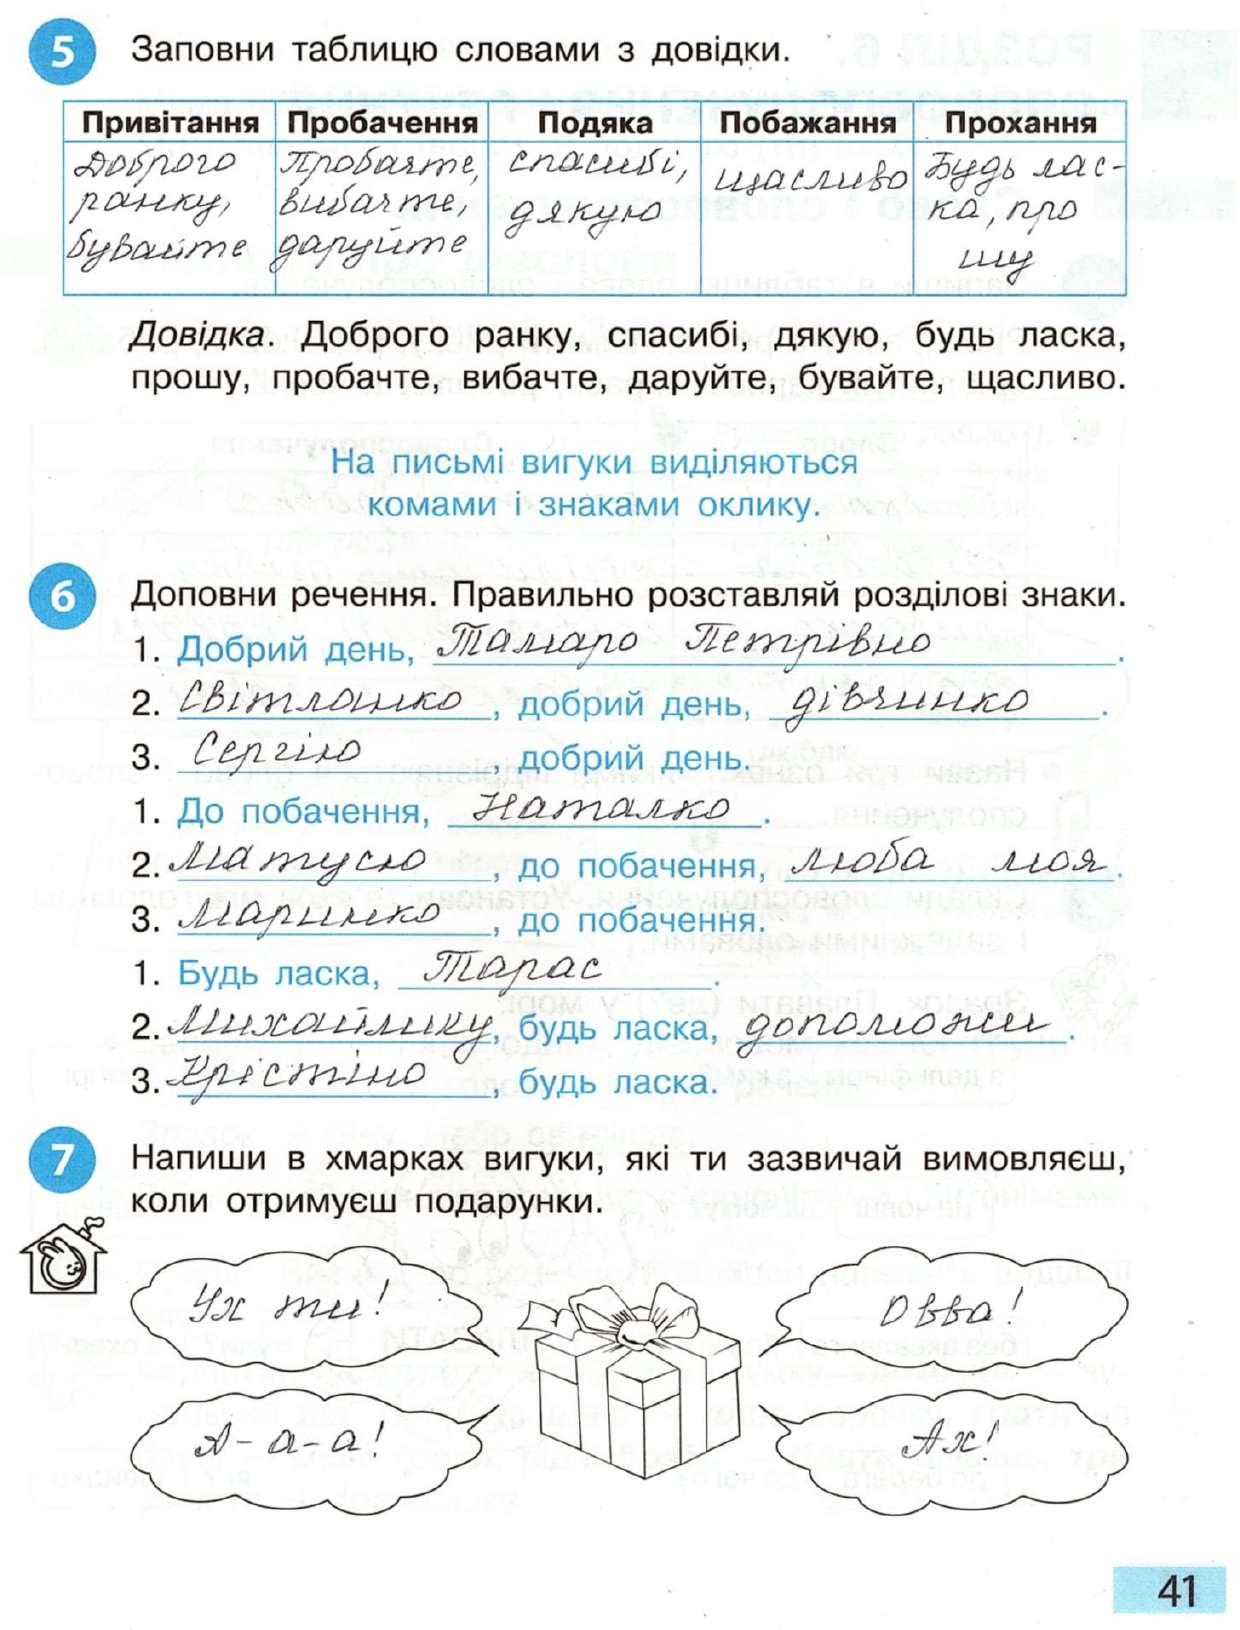 5 Заповни таблицю словами з довідки.
Привітання Пробачення Подяка Побажання Прохання
Доброго Пробачте, спасибі, щасливо Будь лас-
ранку, вибачте, дякую ка, про
бувайте даруйте шу
Довідка. Доброго ранку, спасибі, дякую, будь ласка,
прошу, пробачте, вибачте, даруйте, бувайте, щасливо.
На письмі вигуки виділяються
комами і знаками оклику.
6 Доповни речення. Правильно розставляй розділові знаки.
1. Добрий день, Тамаро Петрівно.
2. Світланко, добрий день, дівчинко.
3. Сергію, добрий день.
1. До побачення, Наталко.
2. Матусю, до побачення, люба моя.
3. Маринко, до побачення.
1. Будь ласка, Тарас.
2. Михайлику, будь ласка, допоможи.
3. Крістіно, будь ласка.
7 Напиши в хмарках вигуки, які ти зазвичай вимовляєш,
коли отримуєш подарунки.
Ух ти! Овва!
А-а-а! Ах!
41